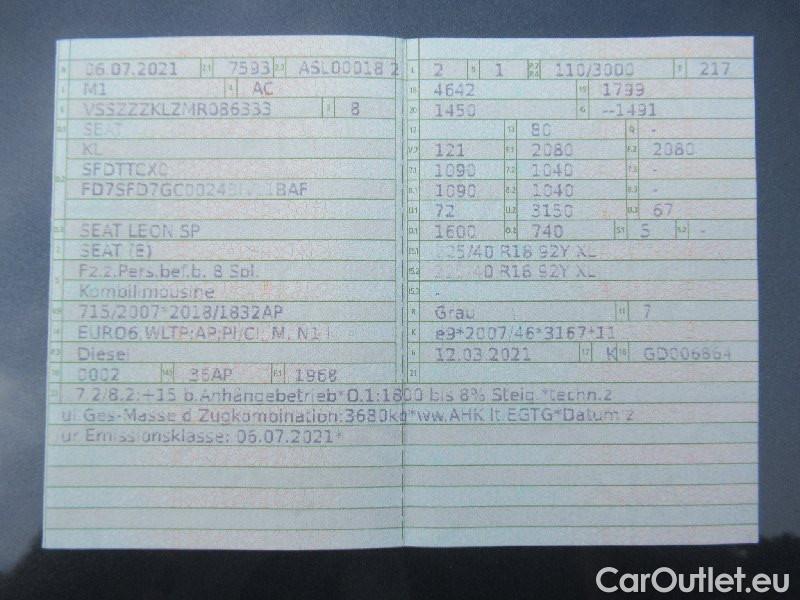 06.07.2021 7593 ASL00018 2
M1 AC
VSSZZZKLZMR086333 8
SEAT
KL
SFDTTCX0
SEAT LEON SP
SEAT (E)
Fz.z.Pers.bef.b. 8 Spl.
Kombilimousine
715/2007*2018/1832AP
EURO6,WLTP;AP,PI/CI, M, N1 I
Diesel
0002 36AP 1968
2 1 110/3000 217
4642 1799
1450 --1491
80 -
121 2080 2080
1090 1040 -
1090 1040 -
72 3150 67
1600 740 5 -
225/40 R18 92Y XL
225/40 R18 92Y XL
-
Grau 7
e9*2007/46*3167*11
12.03.2021 K GD006864
7.2/8.2:+15 b.Anhängebetrieb*O.1:1800 bis 8% Steig.*techn.z
ul Ges-Masse d Zugkombination:3680kg*ww.AHK lt.EGTG*Datum z
ur Emissionsklasse: 06.07.2021*
CarOutlet.eu